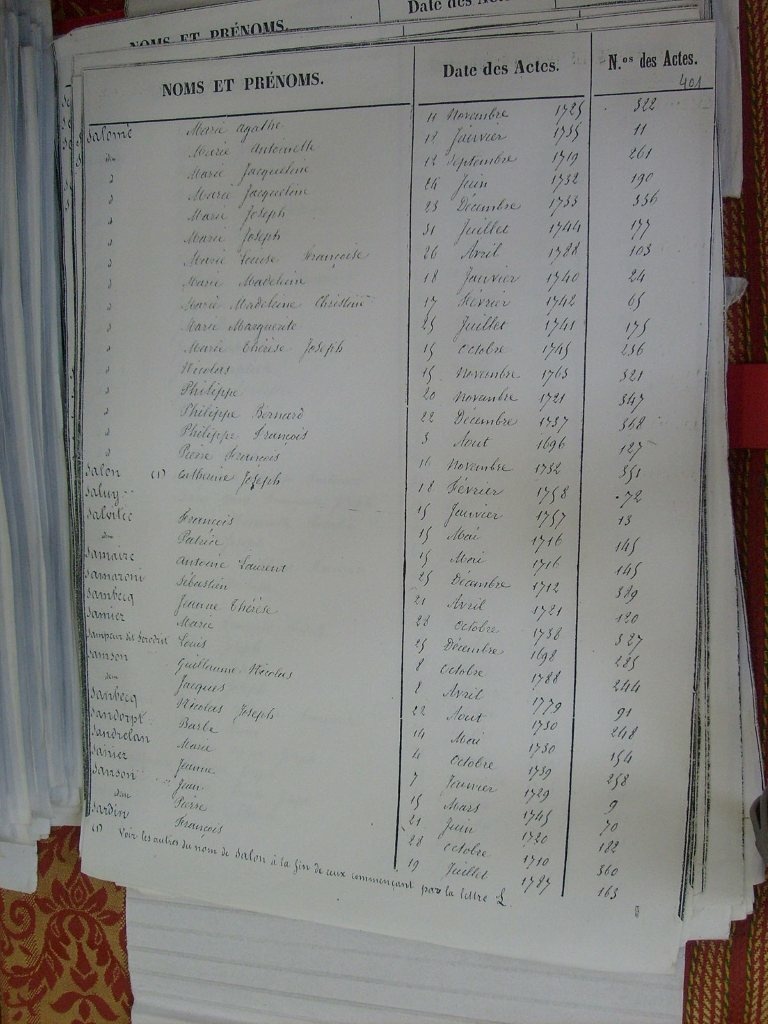 NOMS ET PRÉNOMS. Date des
NOMS ET PRÉNOMS. Date des Actes. N.os des Actes.
401
Salomé Marie Agathe 11 Novembre 1725 322
dm Marie Antoinette 12 Janvier 1735 11
" Marie Jacqueline 12 Septembre 1719 261
" Marie Jacqueline 24 Juin 1732 190
" Marie Joseph 23 Décembre 1733 336
" Marie Joseph 31 Juillet 1744 177
" Marie Louise Françoise 26 Avril 1788 103
" Marie Madeleine 18 Janvier 1740 24
" Marie Madeleine Christine 17 Février 1742 65
" Marie Marguerite 25 Juillet 1741 175
" Marie Thérèse Joseph 15 Octobre 1745 236
" Nicolas 15 Novembre 1763 321
" Philippe 20 Novembre 1721 347
" Philippe Bernard 22 Décembre 1737 368
" Philippe François 3 Aout 1696 127
" Pierre François 16 Novembre 1732 351
Salon (1) Catherine Joseph 18 Février 1758 72
Saluy 15 Janvier 1757 13
François 15 Mai 1716 145
dm Patrice 15 Mai 1716 145
Samaire Antoine Laurent 25 Décembre 1712 389
Samaroni Sébastien 21 Avril 1721 120
Sambecq Jeanne Thérèse 28 Octobre 1738 327
Samiez Marie 25 Décembre 1698 285
Louis 8 Octobre 1788 244
Samson Guillaume Nicolas 2 Avril 1779 91
dm Jacques 22 Aout 1730 248
Sanbecq Nicolas Joseph 14 Mai 1730 154
Sandorpt Barbe 4 Octobre 1739 258
Sandrelan Marie 7 Janvier 1729 9
Saniez Jeanne 15 Mars 1745 70
Sanson Jean 21 Juin 1720 182
dm Pierre 28 Octobre 1710 360
Sardin François 19 Juillet 1787 163
(1) Voir les autres du nom de Salon à la fin de ceux commençant par la lettre L.